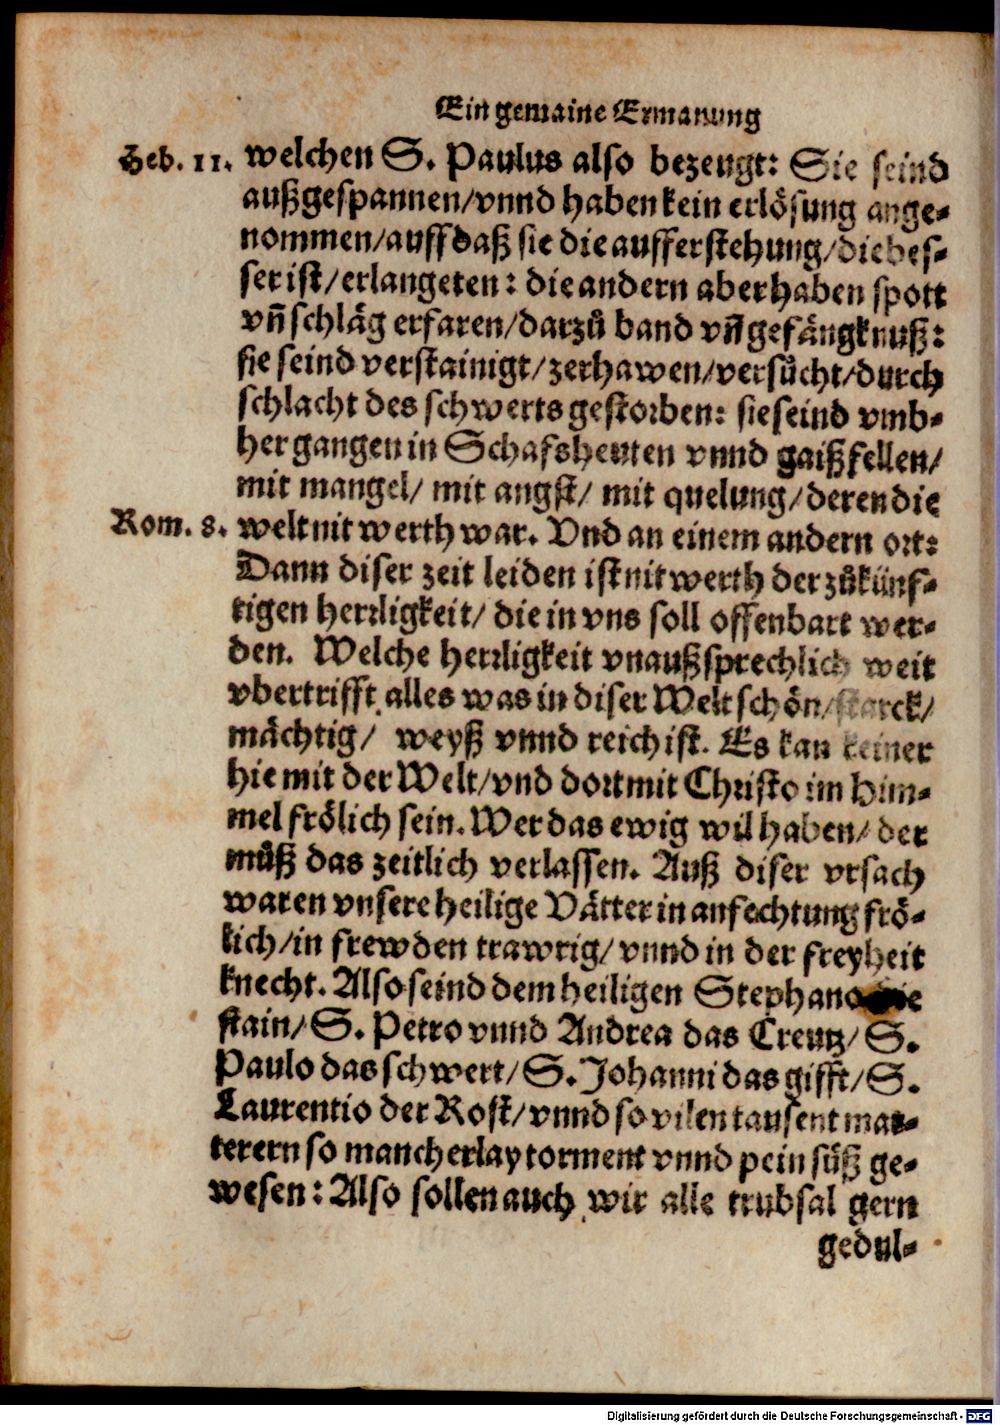 Ein gemaine Ermanung
Heb. 11. welchen S. Paulus also bezeugt: Sie seind
außgespannen/vnnd haben kein erlösung ange-
nommen/auff daß sie die aufferstehung/die bes-
ser ist/erlangeten: die andern aber haben spott
vñ schläg erfaren/darzů band vñ gefängknuß:
sie seind verstainigt/zerhawen/versůcht/durch
schlacht des schwerts gestorben: sie seind vmb-
her gangen in Schafsheuten vnnd gaißfellen/
mit mangel/ mit angst/ mit quelung/deren die
Rom. 8. welt nit werth war. Vnd an einem andern ort:
Dann diser zeit leiden ist nit werth der zůkünf-
tigen herrligkeit/ die in vns soll offenbart wer-
den. Welche herrligkeit vnaußsprechlich weit
vbertrifft alles was in diser Welt schön/starck/
mächtig/ weyß vnnd reich ist. Es kan keiner
hie mit der Welt/vnd dort mit Christo im Him-
mel frölich sein. Wer das ewig wil haben/ der
můß das zeitlich verlassen. Auß diser vrsach
waren vnsere heilige Vätter in anfechtung frö-
lich/in frewden trawrig/vnnd in der freyheit
knecht. Also seind dem heiligen Stephano die
stain/S. Petro vnnd Andrea das Creutz/S.
Paulo das schwert/S. Johanni das gifft/S.
Laurentio der Rost/vnnd so vilen tausent mar-
terern so mancherlay torment vnnd pein süß ge-
wesen: Also sollen auch wir alle trubsal gern
gedul-
Digitalisierung gefördert durch die Deutsche Forschungsgemeinschaft - DFG